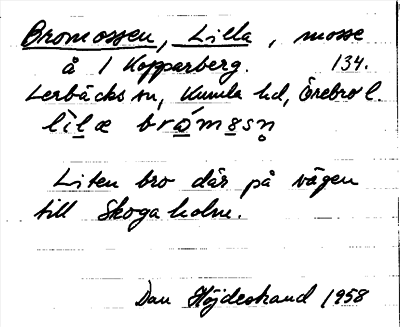 Bromossen, Lilla, mosse
å 1 Kopparberg. 134.
Lerbäcks sn, Kumla hd, Örebro l.
lìlæ brómɜsn̥
Liten bro där på vägen
till Skogaholm.
Dan Höjdestrand 1958